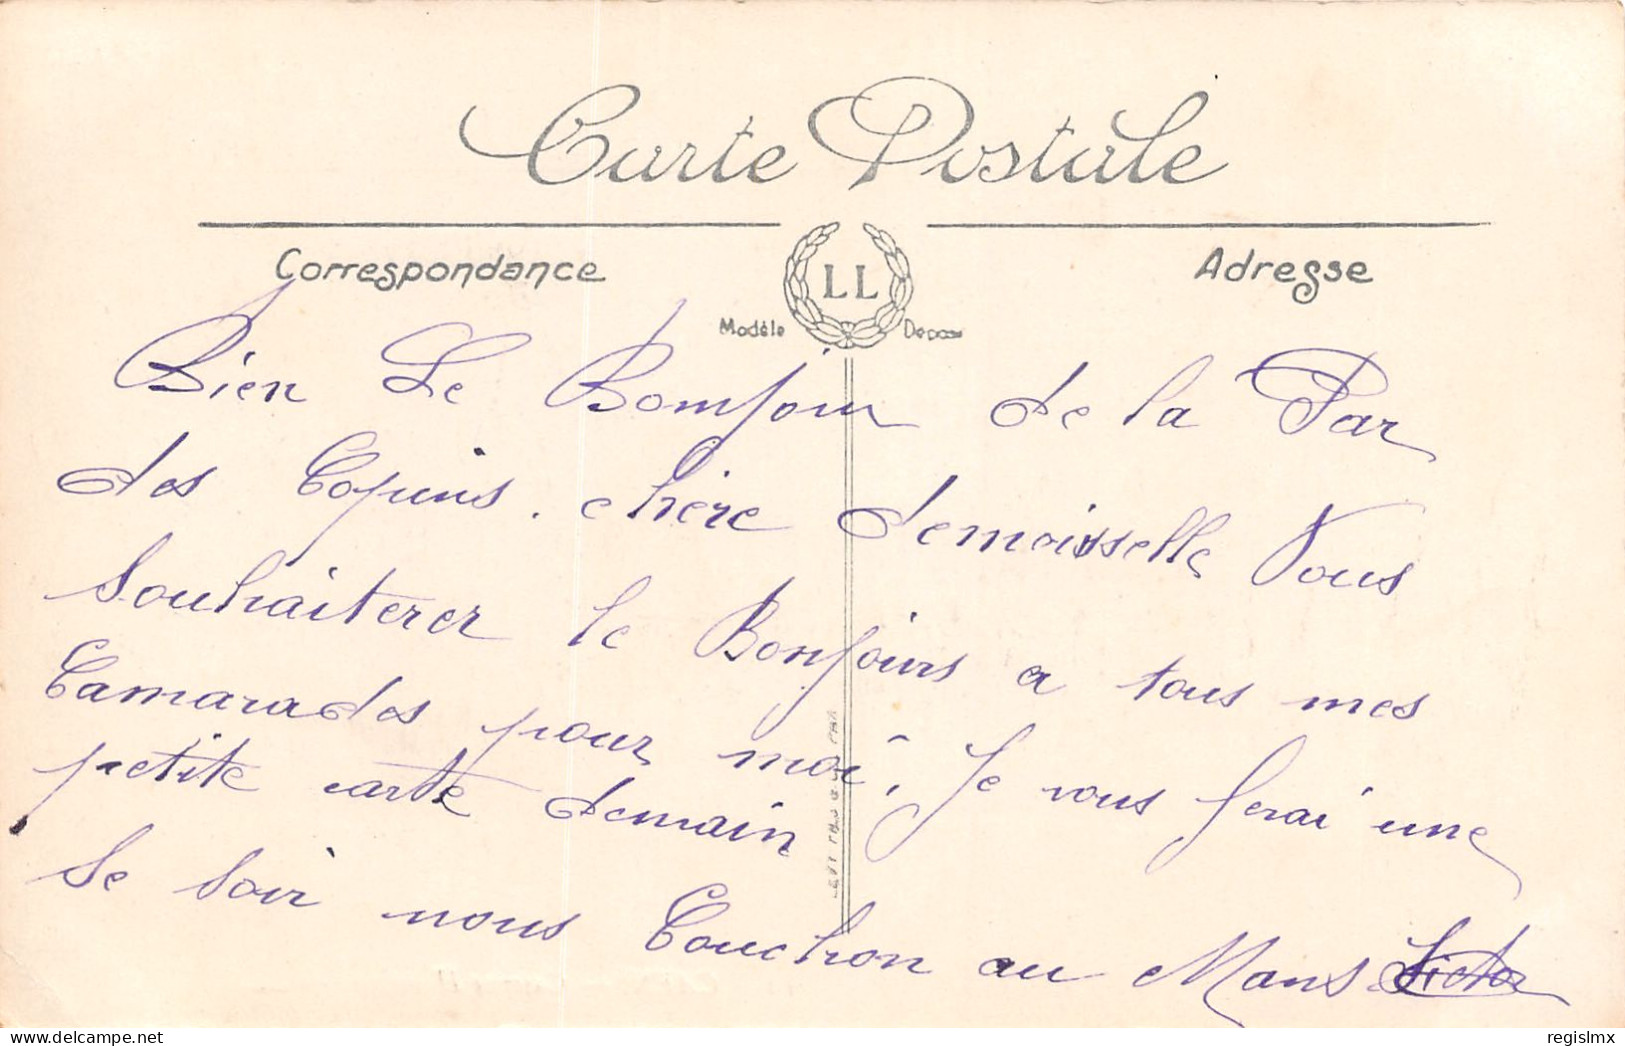 Carte Postale
Correspondance
Adresse
LL
Modèle
Depose
Bien Le Bomjour de la Par
des Copins. chère demoisselle Vous
souhaiterer le Bonjours a tous mes
Camarades pour moi, Je vous ferai une
petite carte demain
Se soir nous Couchon au Mans Victor
regislmx